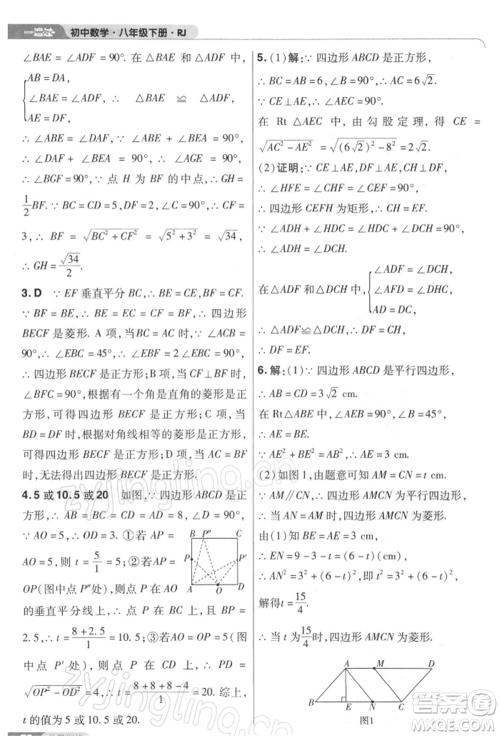 一遍过 初中数学·八年级下册·RJ
∠BAE = ∠ADF = 90°. 在 △ABE 和 △DAF 中,
AB = DA,
∠BAE = ∠ADF, ∴ △ABE ≌ △DAF,
AE = DF,
∴ ∠ABE = ∠DAF. ∵ ∠ABE + ∠BEA = 90°,
∴ ∠DAF + ∠BEA = 90°, ∴ ∠AGE = 90°,
∴ ∠BGF = 90°. ∵ 点 H 为 BF 的中点, ∴ GH =
1/2 BF. ∵ BC = CD = 5, DF = 2, ∴ CF = 5 - 2 = 3,
∴ BF = √(BC² + CF²) = √(5² + 3²) = √34,
∴ GH = √34/2.
3. D ∵ EF 垂直平分 BC, ∴ BE = EC, BF = CF.
∵ BF = BE, ∴ BE = EC = CF = BF, ∴ 四边
形 BECF 是菱形. A 项, 当 BC = AC 时, ∵ ∠ACB
= 90°, ∴ ∠A = 45°, ∴ ∠EBC = 45°,
∴ ∠EBF = 2∠EBC = 2 × 45° = 90°,
∴ 四边形 BECF 是正方形; B 项, 当 CF ⊥ BF 时,
∠BFC = 90°, 根据有一个角是直角的菱形是正方
形, 可得四边形 BECF 是正方形; C 项, 当
BD = DF 时, BC = EF, 根据对角线相等的菱形是正
方形, 可得四边形 BECF 是正方形; D 项, 当 AC =
BD 时, 无法得出四边形 BECF 是正方形.
4. 5 或 10.5 或 20 如图, 四边形 ABCD 是正
方形, ∴ AO = OB = 5. ①若 AP =
AO = 5, ∴ t = 5/1 = 5; ②若 AO =
OP(图中点 P″处), 则点 P 在 OA
的垂直平分线上, ∴ 点 P 在 BC 上, ∴ BP =
2.5, ∴ t = (8 + 2.5)/1 = 10.5; ③若 AO = OP = 5(图中
点 P′处), 则点 P 在 CD 上, ∴ PD =
√(OP² - OD²) = 4, ∴ t = (8 + 8 + 8 - 4)/1 = 20. 综上,
t 的值为 5 或 10.5 或 20.
5. (1)解: ∵ 四边形 ABCD 是正方形,
∴ BC = AB = 6, ∠B = 90°, ∴ AC = 6√2.
∵ CE ⊥ AE, ∴ ∠AEC = 90°.
在 Rt △AEC 中, 由勾股定理, 得 CE =
√(AC² - AE²) = √((6√2)² - 8²) = 2√2.
(2)证明: ∵ CE ⊥ AE, DF ⊥ AE, DH ⊥ CE,
∴ ∠HFE = ∠HCE = ∠CHF = 90°,
∴ 四边形 CEFH 为矩形, ∴ CH = EF.
∵ ∠ADH + ∠HDC = ∠HDC + ∠DCH = 90°,
∴ ∠ADH = ∠DCH.
∠ADF = ∠DCH,
在 △ADF 和 △DCH 中, ∠AFD = ∠DHC,
AD = CD,
∴ △ADF ≌ △DCH, ∴ DF = CH,
∴ DF = EF.
6. 解: (1) ∵ 四边形 ABCD 是平行四边形,
∴ AB = CD = 3√2 cm.
在 Rt△ABE 中, ∵ ∠AEB = 90°, ∠B = 45°,
∴ ∠BAE = 45° = ∠B, ∴ AE = BE.
∵ AE² + BE² = AB², ∴ AE = 3 cm.
(2) 如图 1, 由题意可知 AM = CN = t cm,
∵ AM∥CN, ∴ 四边形 AMCN 为平行四边形,
∴ 当 AN = AM 时, 四边形 AMCN 为菱形.
由(1)知 BE = AE = 3 cm,
∴ EN = (9 - t) cm, ∴ 3² + (9 - t)² = t²,
解得 t = 15/4,
∴ 当 t 为 15/4 时, 四边形 AMCN 为菱形.
A M D
B E N C
图1
zyjingling.com